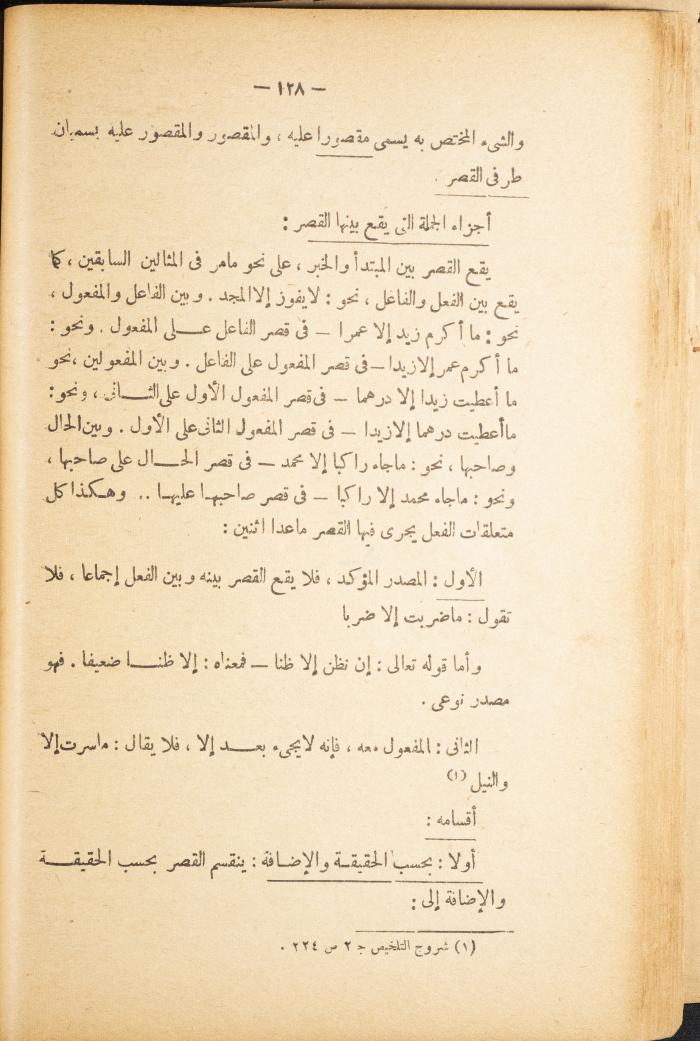 — ١٢٨ —
والشىء المختص به يسمى مقصورا عليه ، والمقصور والمقصور عليه يسميان
طرفى القصر .
أجزاء الجملة التى يقع بينها القصر :
يقع القصر بين المبتدأ والخبر ، على نحو مامر فى المثالين السابقين ، كما
يقع بين الفعل والفاعل ، نحو : لايفوز إلا المجد . وبين الفاعل والمفعول ،
نحو : ما أكرم زيد إلا عمرا — فى قصر الفاعل عـلى المفعول . ونحو :
ما أكرم عمر إلازيدا — فى قصر المفعول على الفاعل . وبين المفعولين ،نحو
ما أعطيت زيدا إلا درهما — فى قصر المفعول الأول على الثـانى ، ونحو :
ماأعطيت درهما إلازيدا — فى قصر المفعول الثانى على الأول . وبين الحال
وصاحبها ، نحو : ماجاء راكبا إلا محمد — فى قصر الحـال على صاحبها ،
ونحو : ماجاء محمد إلا راكبا — فى قصر صاحبهـا عليهـا .. وهـكذا كل
متعلقات الفعل يجرى فيها القصر ماعدا اثنين :
الأول : المصدر المؤكد ، فلا يقع القصر بينه وبين الفعل إجماعا ، فلا
تقول : ماضربت إلا ضربا
وأما قوله تعالى : إن نظن إلا ظنا — فمعناه : إلا ظنـا ضعيفا . فهو
مصدر نوعى .
الثانى : المفعول معه ، فإنه لايجىء بعـد إلا ، فلا يقال : ماسرت إلا
والنيل (١)
أقسامه :
أولا : بحسب الحقيقـة والإضـافة : ينقسم القصر بحسب الحقيقـة
والإضافة إلى :
(١) شروح التلخيص ج ٢ ص ٢٢٤ .